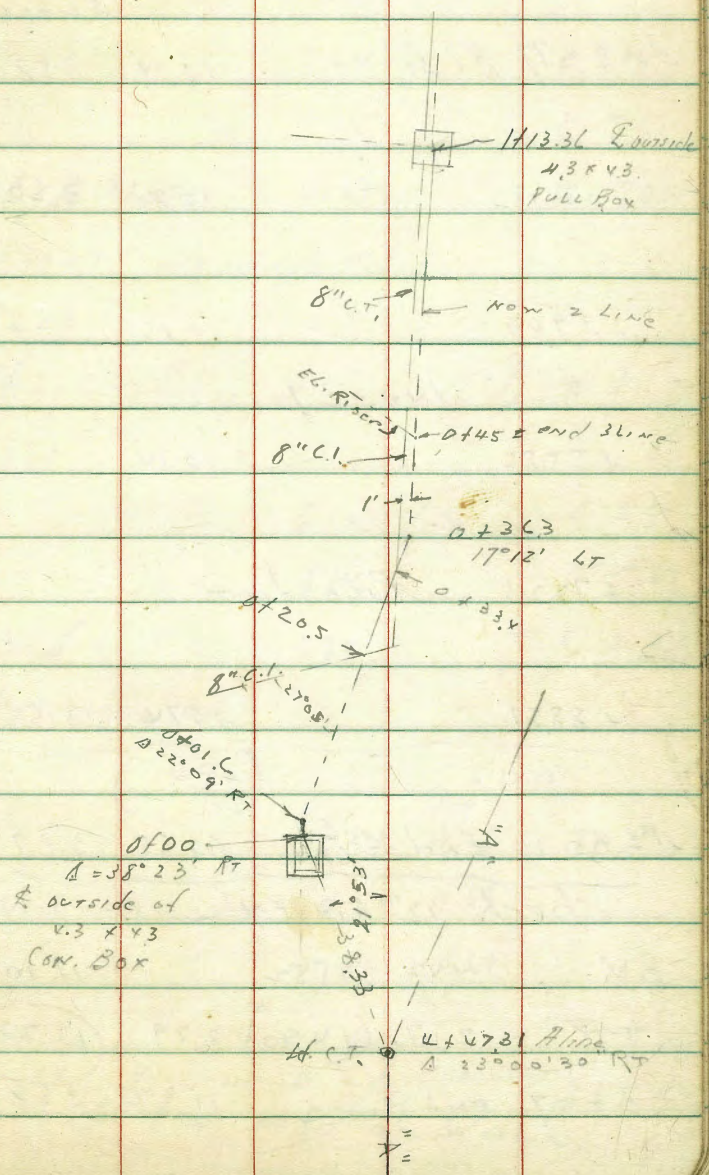 1+13.36 ℄ outside
4.3 x 4.3
Pull Box
8" C.I.
Now 2 Line
El. Risers
0+45 ± end 3 Line
8" C.I.
1'
0+36.3
17°12' LT
0+33.4
0+20.5
8" C.I.
27°08'
0+01.6
Δ 22°09' RT
0+00
Δ = 38°23' RT
℄ outside of
4.3 x 4.3
Con. Box
"A"
38.33
4+47.31 A line
Δ 23°00'30" RT
"A"